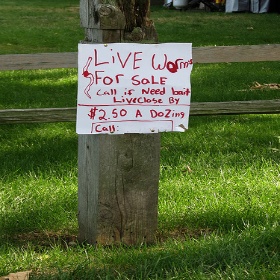 LiVE Worms
FOR SALE
Call if Need bait
LiveClose By
$2.50 A Dozing
Call: